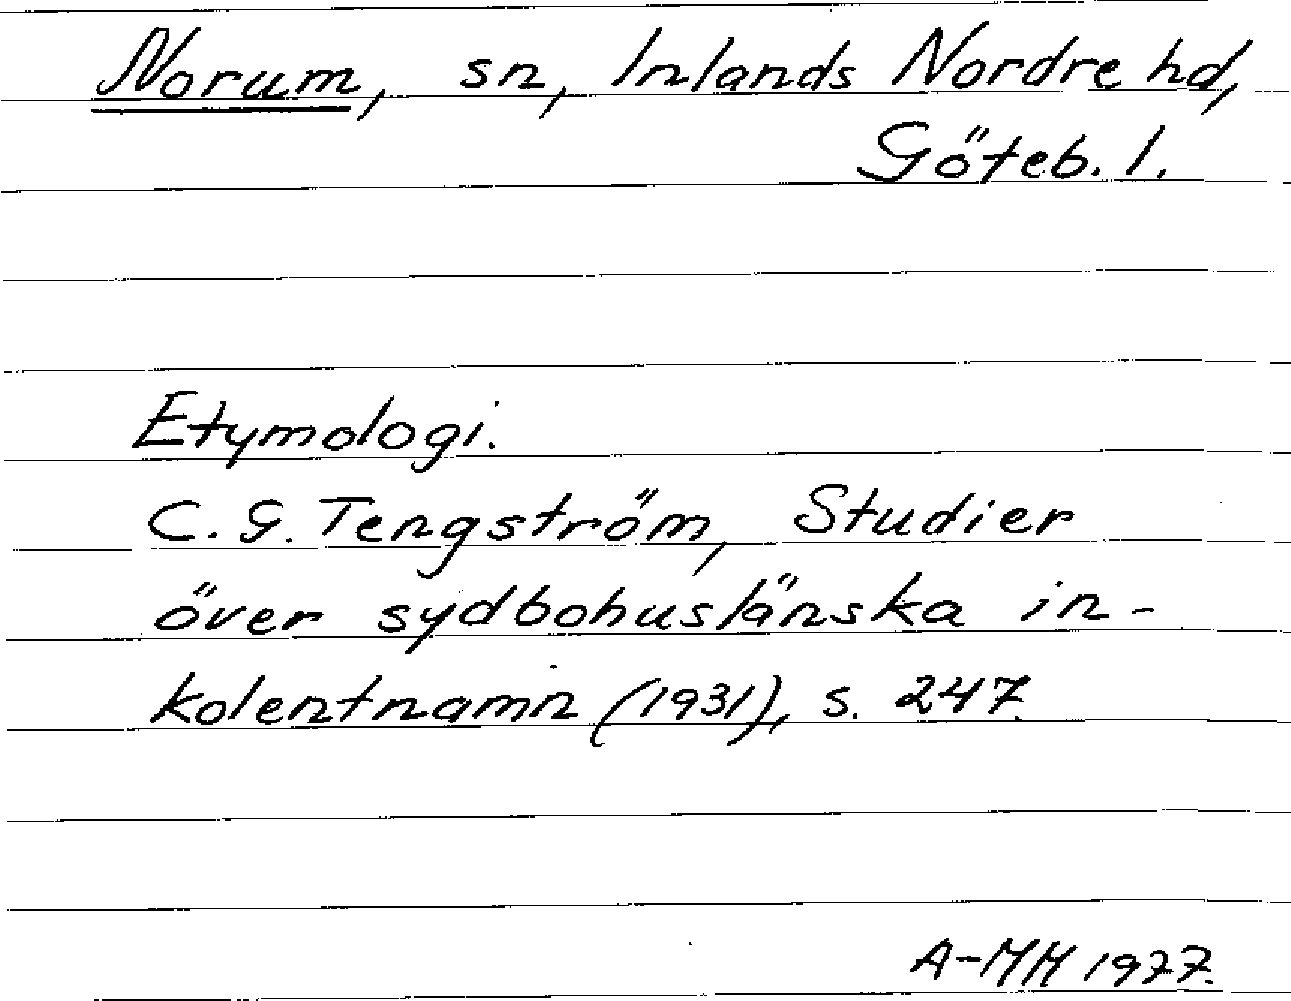 Norum, sn, Inlands Nordre hd,
Göteb. l.
Etymologi.
C. G. Tengström, Studier
över sydbohuslänska in-
kolentnamn (1931), s. 247.
A-MH 1977.